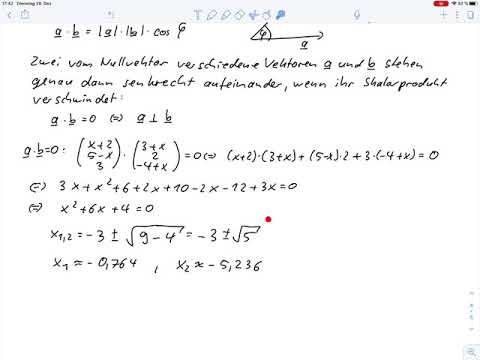 11:42 Dienstag 29. Dez.
52 %
a · b = |a| · |b| · cos φ
φ
a
Zwei vom Nullvektor verschiedene Vektoren a und b stehen
genau dann senkrecht aufeinander, wenn ihr Skalarprodukt
verschwindet:
a · b = 0 ⇔ a ⊥ b
a·b=0: (x+2 5-x 3) · (3+x 2 -4+x) = 0 ⇔ (x+2)·(3+x)+(5-x)·2+3·(-4+x)=0
⇔ 3x+x²+6+2x+10-2x-12+3x=0
⇔ x²+6x+4=0
x1,2 = -3 ± √9-4 = -3 ± √5
x1 ≈ -0,764 , x2 ≈ -5,236